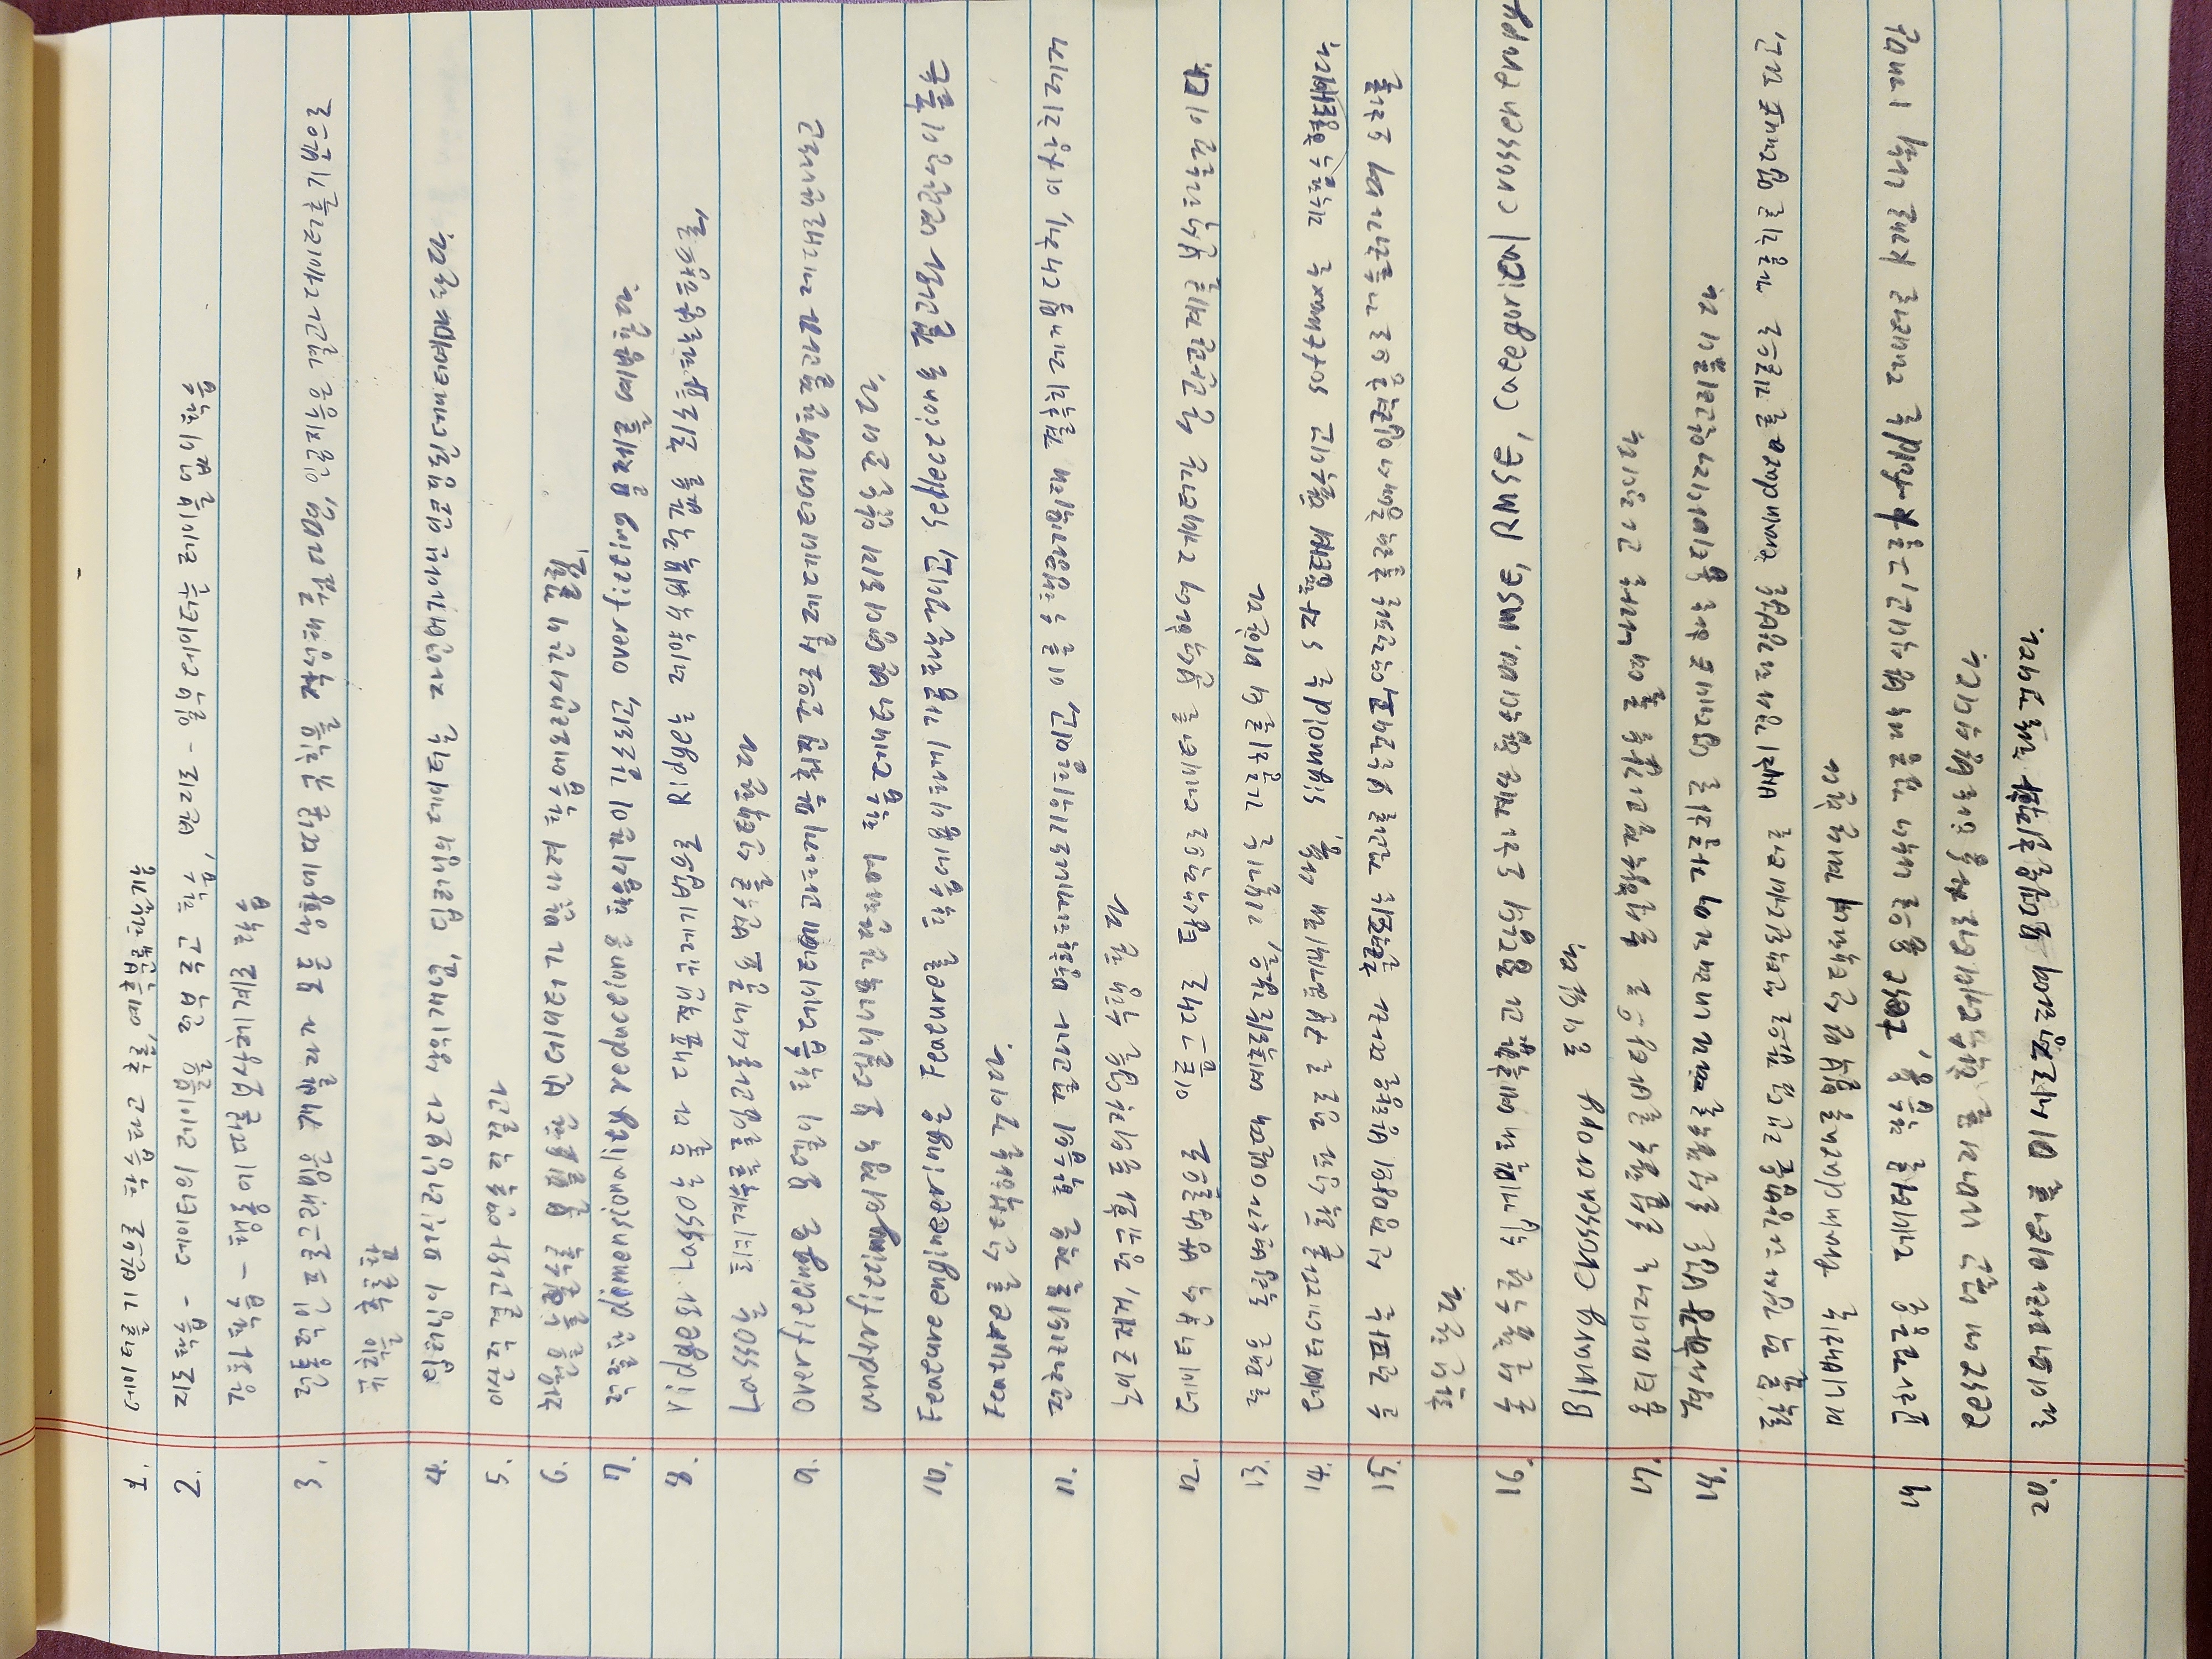 1. 데이터를 기반으로 학습하고 추론, 예측분류하는기능
2. 지도학습 - 데이터의 레이블을 전부 주고 학습, 반지도 - 일부데이터는 레이블 없이 학습
강화학습 - 행동에 따른 보상체계로 학습
3. 전통적인 프로그래밍은 개발자가 모든 상황에 따른 규칙을 작성해 줬다면, 인공지능은 결과데이터를기반으로
규칙을 추론함
4. 딥러닝이 머신러닝보다 상위개념, 딥러닝의 데이터는 자연어가아닌 인코딩된데이터여야 한다.
5. 이산적결과와 연속적결과
6. 차원을 늘릴수록 불필요한 빈데이터가 많아져 학습에오랜시간이 걸림.
7. 적절한 dimensionality reduction은 학습시간이 감소되고, overfitting 문제를 예방한다.
8. ridge와 Lasso는 둘 다 대표적인규제기법으로 Ridge는 제약 목적값을 최소화하는방향으로,
Lasso는 회귀계수를 줄임과동시에중요 변수를 선택한다
9. overfitting은 모델이 학습데이터에 과하게 맞춰진 것으로 실제데이터에대한결과가 제대로안나오고
underfitting의경우 모델이너무간단하여 학습데이터 반영이되지 않는것이다.
10. Feature engineering은 Feature를 학습에용이하게 가공하는것이고, sellection은 결과와 연관성이 높은
Feature를 선택하는것이다.
11. 전처리의목적은 학습의 결과가 명확하게나오기위함이고, 이를 수행하기위해 결측치제거및대체, 이상치제거
노이즈제거, 정규화 등의작업을 수행 한다
12. 데이터분석 방법론으로 이름그대로 탐색적으로데이터를 분석하여 데이터간 상관관계를 분석하는것이다.
13. 절편은 독립변수가 0일때 예측되는값을, 기울기는 가중치를의미한다
14. 데이터에따른 구분하기위해 사용, sigmoid는 s자형태의 함수이고 softmax는 지수함수형태이다.
15. 순전파는 신경망의 방향을 따라 출력되는 결과를 보는것이고, 역전파는 출력층에서 입력층으로 거슬러가며 오차를
확인한다.
16. 손실함수란 쉽게말해예측값과 정답의 오차계산함수이며. MSE, RMSE, Categorical crossentropy
Binary crossentropy 등이있다.
17. 옵티마이저는 손실함수를바탕으로 손실함수결과값을 줄여나가는 과정이다.
18. 경사하강법은 손실함수를 따라 내려가며 가중치를 업데이트하는 옵티마이저알고리즘이다.
확률적경사하강법은 랜덤값으로선택된데이터로 배치경사하강법은 traindata를기준으로 가중치를업데이트하고,
미니배치는 traindata를일부만선택하여계산한다
19 교차검증은 데이터를 학습용, test용으로 나눠서 검증하는방식이고, 그중k-fold는 데이터를 k개로 나눠 1개만
test에 넣고 나머지를 학습데이터로사용하는방식이다.
20. 하이퍼파라미터를 미세조정하여 모델을최적화 하는것이다.